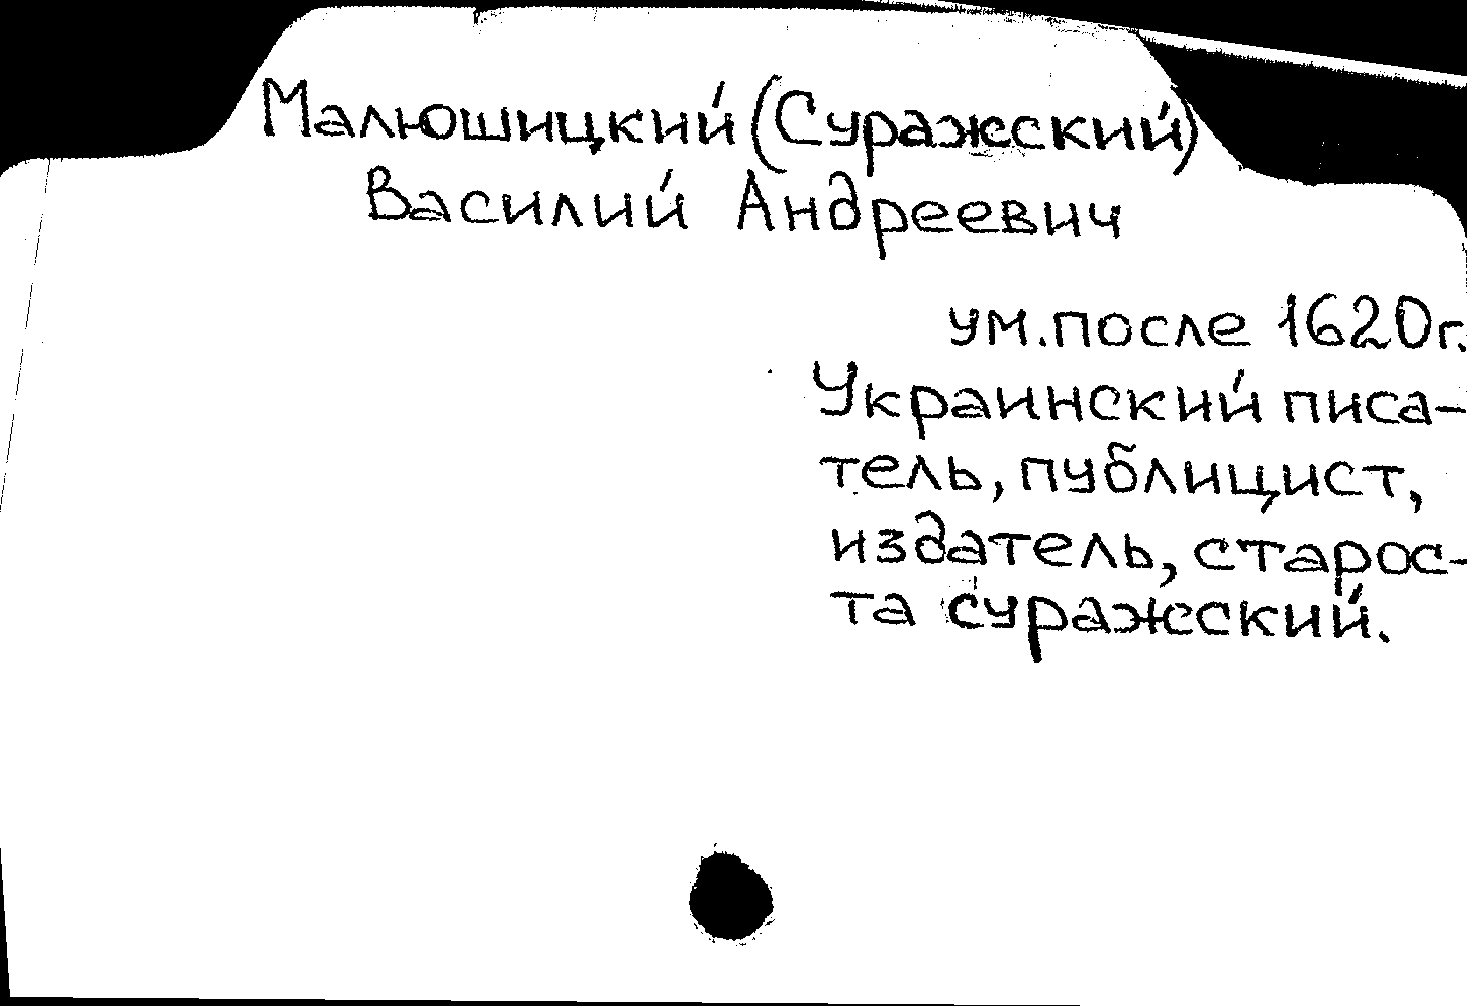 Малюшицкий (Суражский)
Василий Андреевич
ум. после 1620 г.
Украинский писа-
тель, публицист,
издатель, старос-
та суражсский.